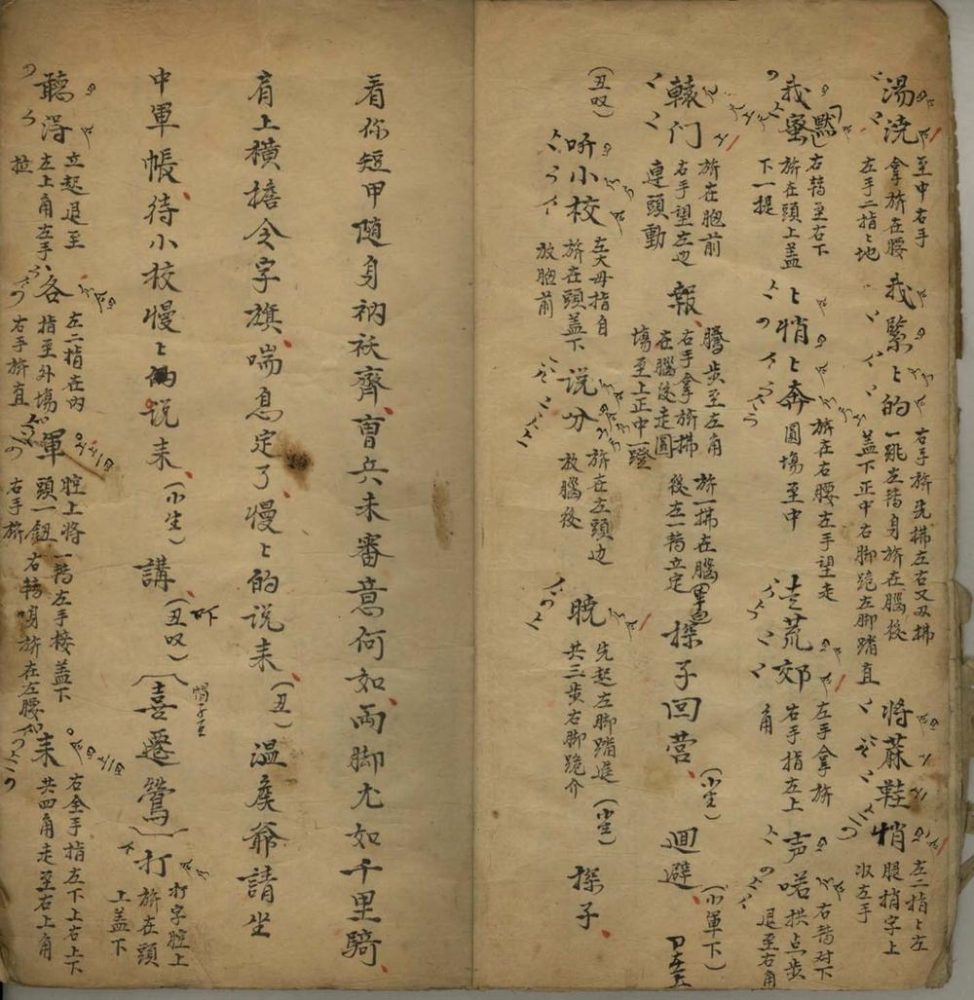 湯浇 至中右手 拿旂在腰 左手二指〻地 我緊〻的 右手旂先拂左右又双拂 一跳左轉身旂在腦後 盖下正中右脚跪左脚踏直 将蔴鞋悄 左二指〻左 腿捎字上 収左手
我 默 右轉至右下 旂在頭上盖 下一提 〻悄〻奔 旂在右腰左手望走 圓塲至中 走荒郊 左手拿旂 右手指左上 角 声喏 右轉对下 拱点步 退至右角
轅门 旂在胞前 右手望左边 連頭動 報 騰步至左角 右手拿旂拂 在腦後走圓 塲至上正中一蹬 旂一拂在腦 後左一轉立定 探子回营、(小生) 迴避、(小軍下)
(丑叹) 听小校 左大毋指自 旂在頭盖下 放胞前 说分 旂在左頭边 放腦後 曉 先起左脚踏進 共三步右脚跪介 (小生) 探子、
看你短甲随身衲袄齊、曹兵未審意何如、両脚尤如千里騎、
肩上横擔令字旗、喘息定了慢〻的说来、(丑) 温侯爺請坐
中軍帳、待小校慢〻的说来、(小生) 講、(丑叹) 吓 〔喜遷鶯〕 打 打字腔上 旂在頭 上盖下
聽淂 立起退至 左上角左手 拉 各 左二指在内 指至外塲 右手旂直 軍 腔上将一轉左手接盖下 頭一鈕 右轉身旂在左腰 右手旂 来 右全手指左下上右上下 共四角走至右上角